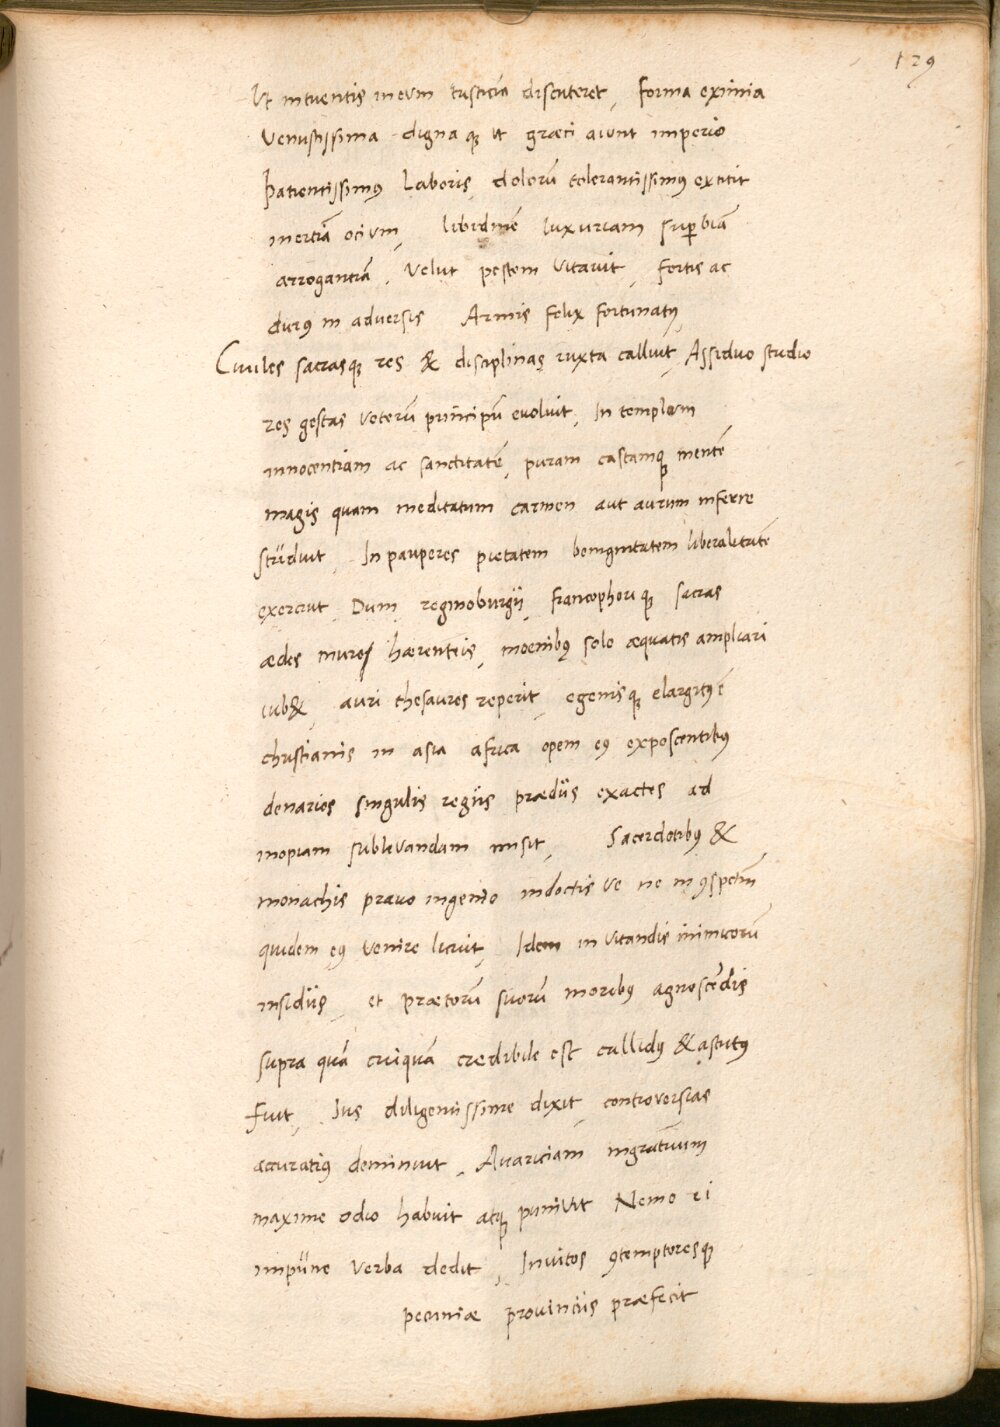 129
Ut intuentis in eum iusticiã discuteret, forma eximia
Venustissima digna q; ut græci aiunt imperio
Patientissimꝰ Laboris, dolorũ tolerantissimꝰ extitit
inertiã ocium, libidinẽ luxuriam suꝑbiã
arrogantiã, Velut pestem vitavit, fortis ac
durꝰ in adversis Armis felix fortunatꝰ,
Ciuiles sacrasq; res & disciplinas iuxta calluit, Assiduo studio
res gestas veterũ principũ evoluit, In templum
innocentiam ac sanctitatẽ, puram castamq; mentẽ
magis quam meditatum carmen aut aurum inferre
studuit, In pauperes pietatem benignitatem liberalitatẽ
exercuit, Dum reginoburgii, francophori q; sacras
ædes muros hærenteis, moenibꝰ solo æquatis ampliari
iub&, auri thesauros reperit, egenisq; elargitꝰ ẽ
christianis in asia africa opem eꝰ exposcentibꝰ
denarios singulis regiis prædiis exactos ad
inopiam sublevandam misit, Sacerdotibꝰ &
monachis pravo ingenio indoctis ve ne in ꝯspectũ
quidem eꝰ venire licuit, Idem in vitandis inimicorũ
insidiis, et prætorũ suorũ moribꝰ agnoscẽdis
supra quã cuiquã credibile est callidꝰ & astutꝰ
fuit, Ius diligentissime dixit, controversias
accuratiꝰ deminuit, Avariciam ingratuum
maxime odio habuit atq; punivit Nemo ei
impune verba dedit, Invitos ꝯtemptoresq;
pecuniæ provinciis præfecit